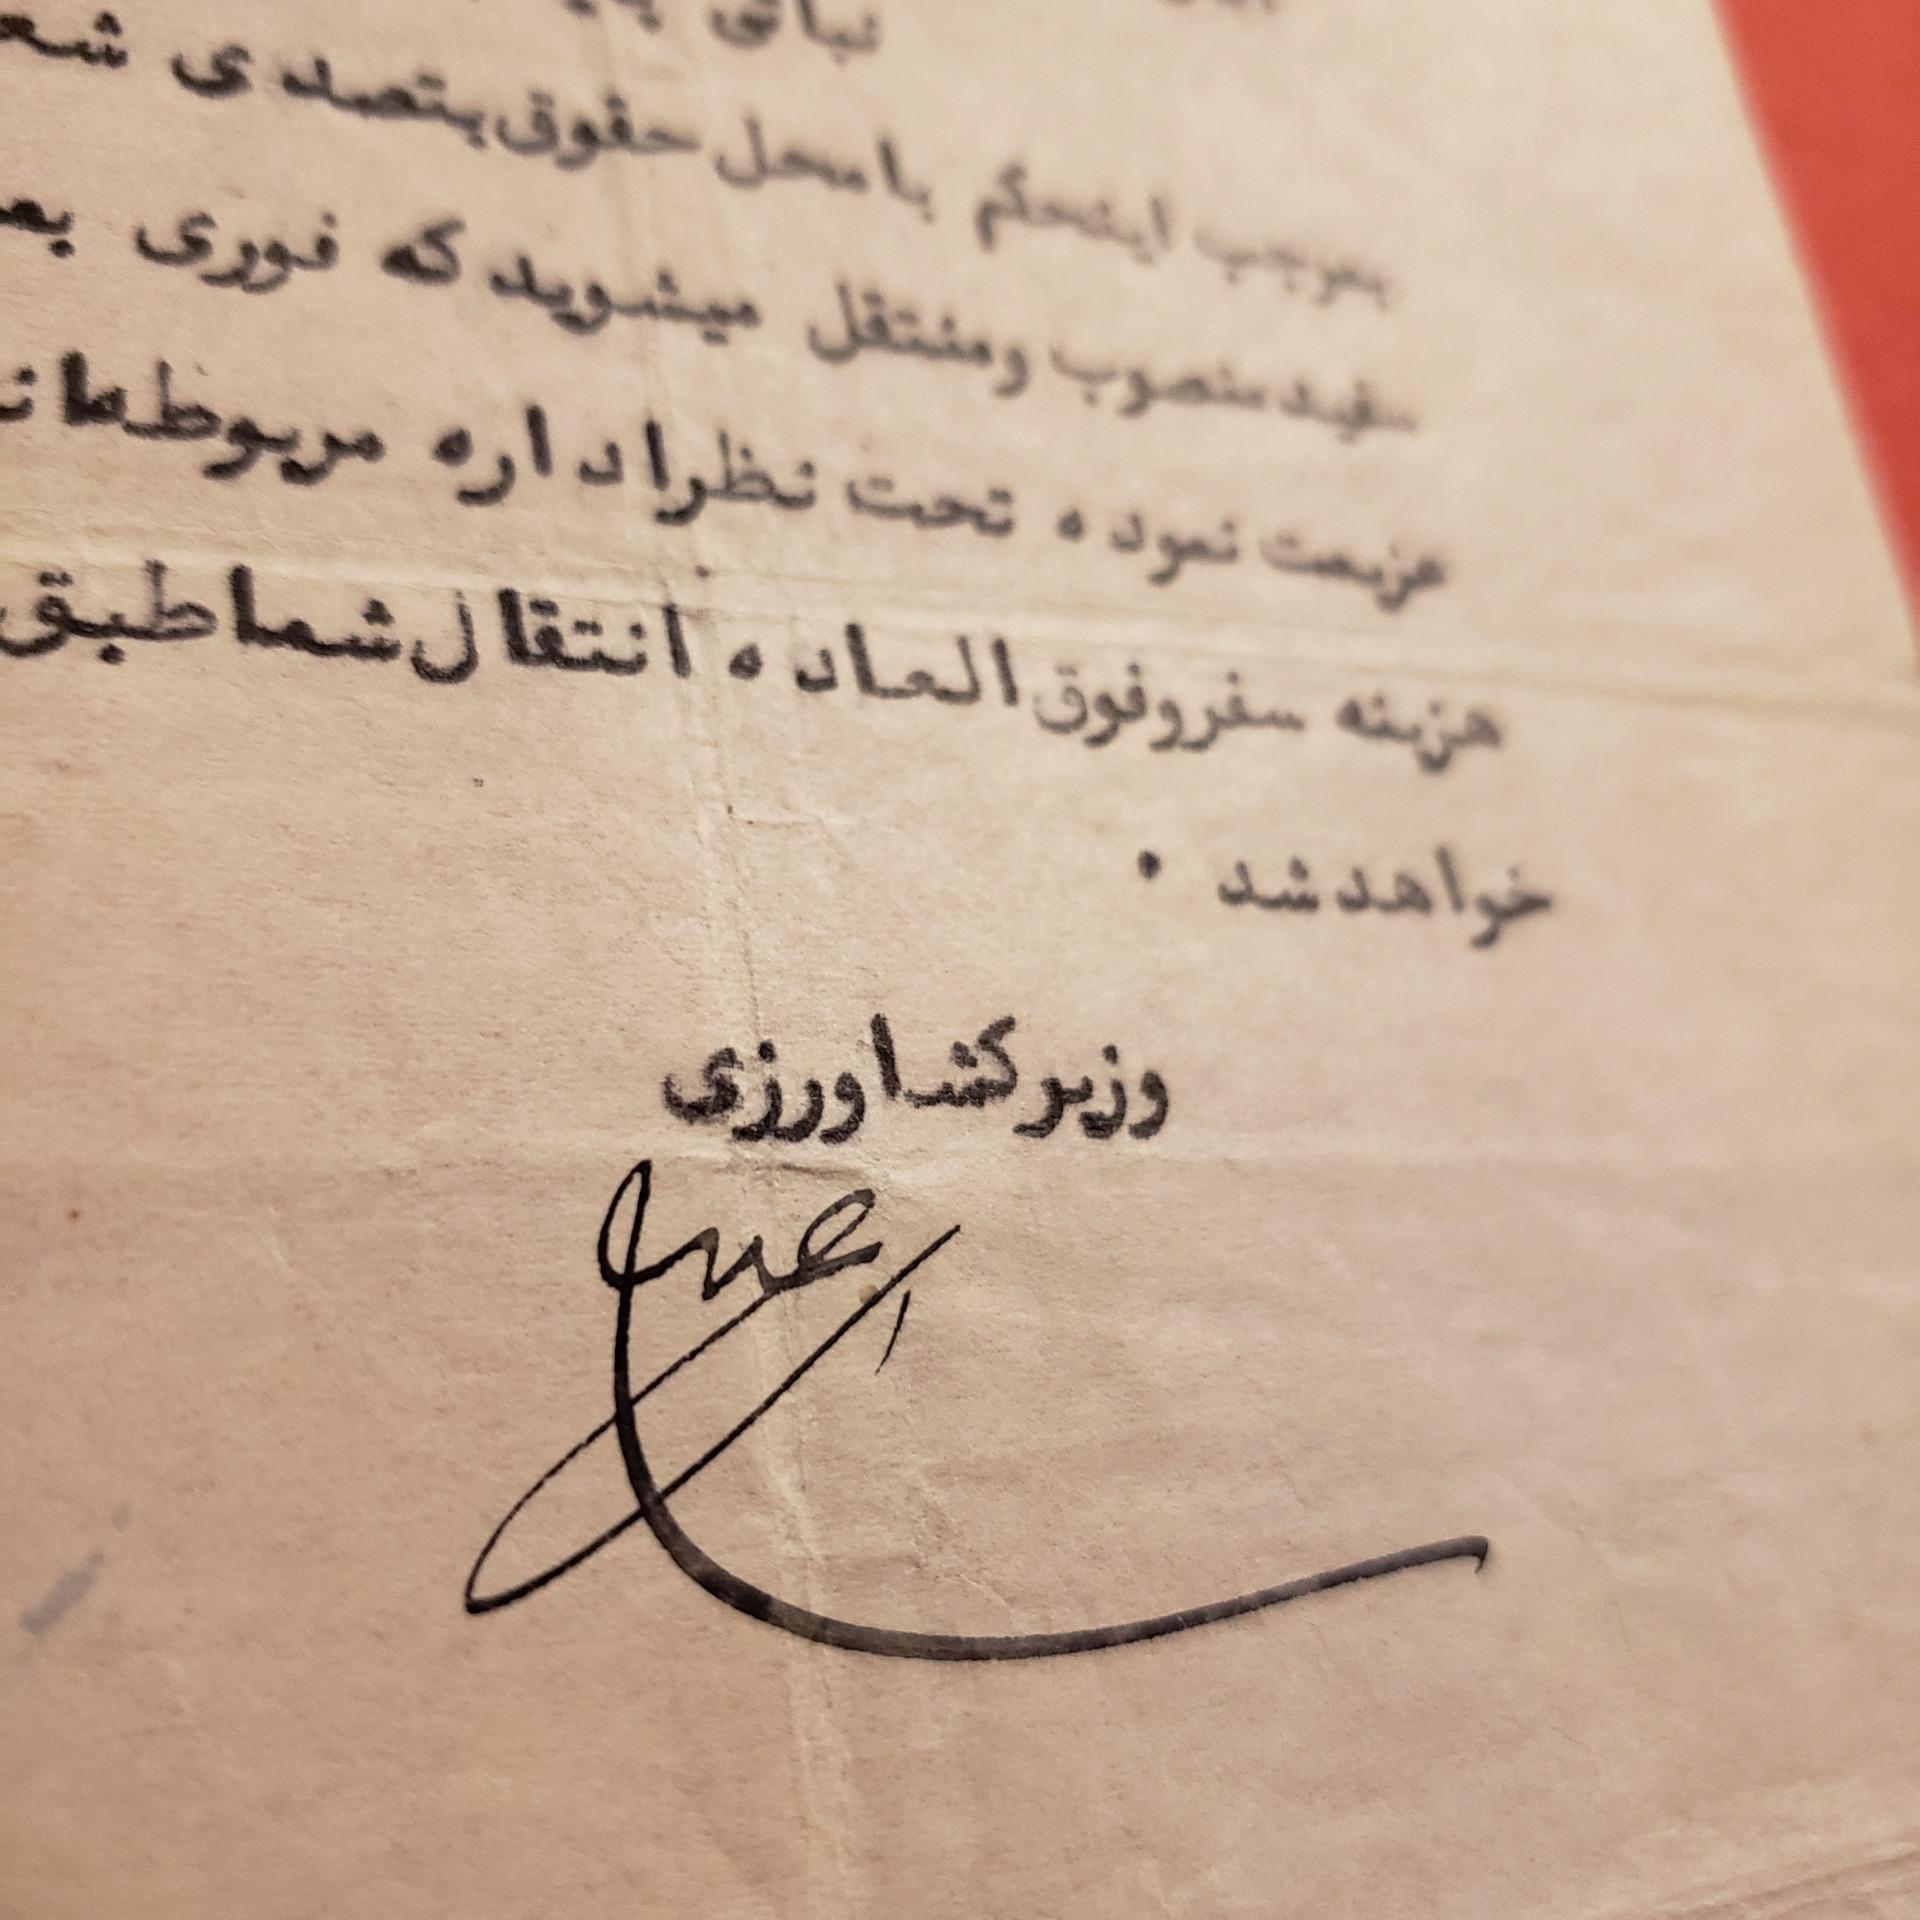 نباتی
بموجب اینحکم با محل حقوق بتصدی شع
سفید منصوب و منتقل میشوید که فوری بم
عزیمت نموده تحت نظر اداره مربوطه ان
هزینه سفر و فوق العاده انتقال شما طبق
خواهد شد .
وزیر کشاورزی